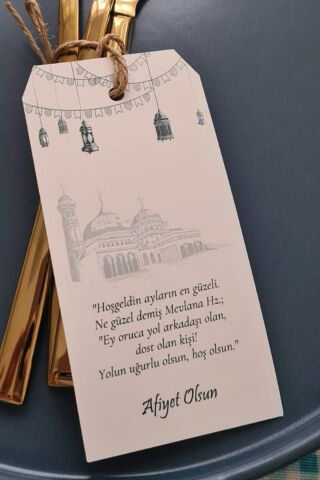 "Hoşgeldin ayların en güzeli.
Ne güzel demiş Mevlana Hz.;
"Ey oruca yol arkadaşı olan,
dost olan kişi!
Yolun uğurlu olsun, hoş olsun."
Afiyet Olsun